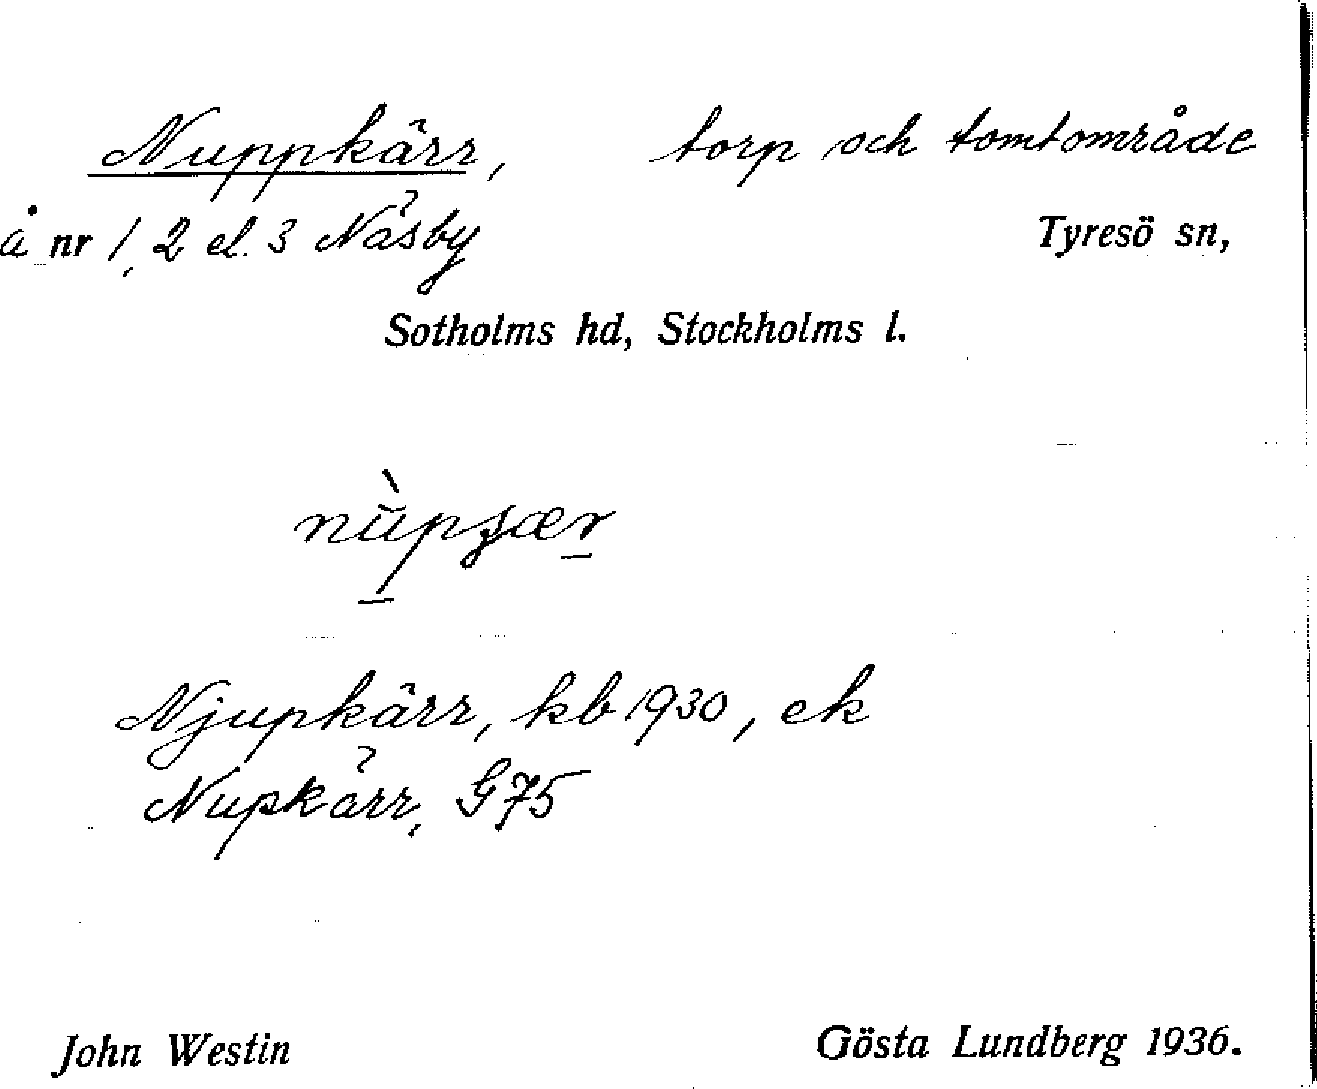 Nuppkärr, torp och tomtområde
å nr 1, 2 el. 3 Näsby Tyresö sn,
Sotholms hd, Stockholms l.
Njupkärr, kb 1930, ek
Nupkärr, G75
John Westin Gösta Lundberg 1936.